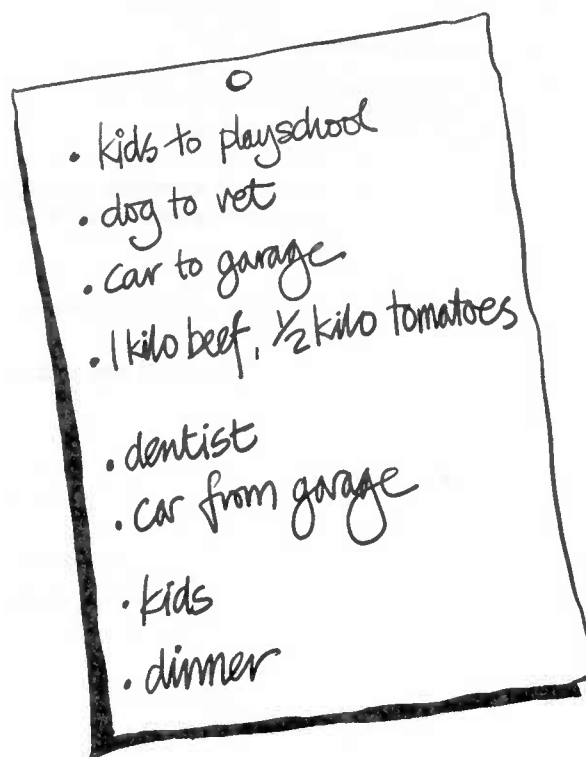 • kids to playschool
• dog to vet
• car to garage
• 1 kilo beef, ½ kilo tomatoes
• dentist
• car from garage
• kids
• dinner